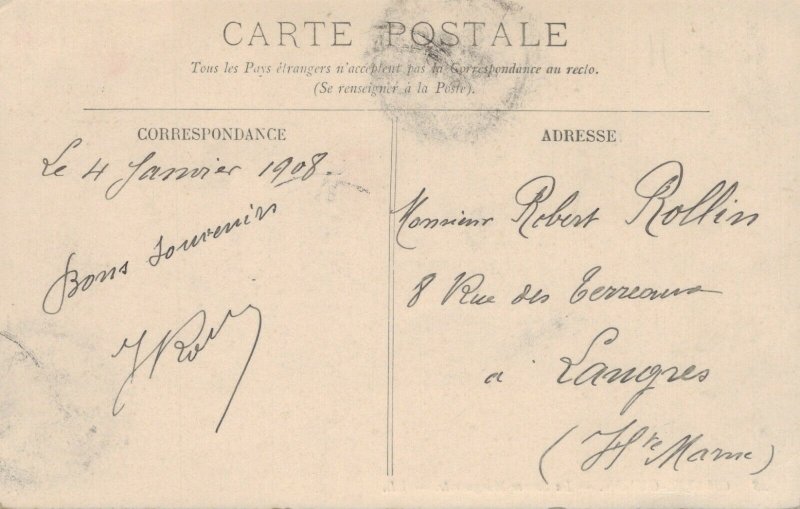 CARTE POSTALE
Tous les Pays étrangers n'acceptent pas la Correspondance au recto.
(Se renseigner à la Poste).
CORRESPONDANCE
Le 4 Janvier 1908.
Bons souvenirs
ADRESSE
Monsieur Robert Rollin
8 Rue des Terreaux
a Langres
(Hte Marne)